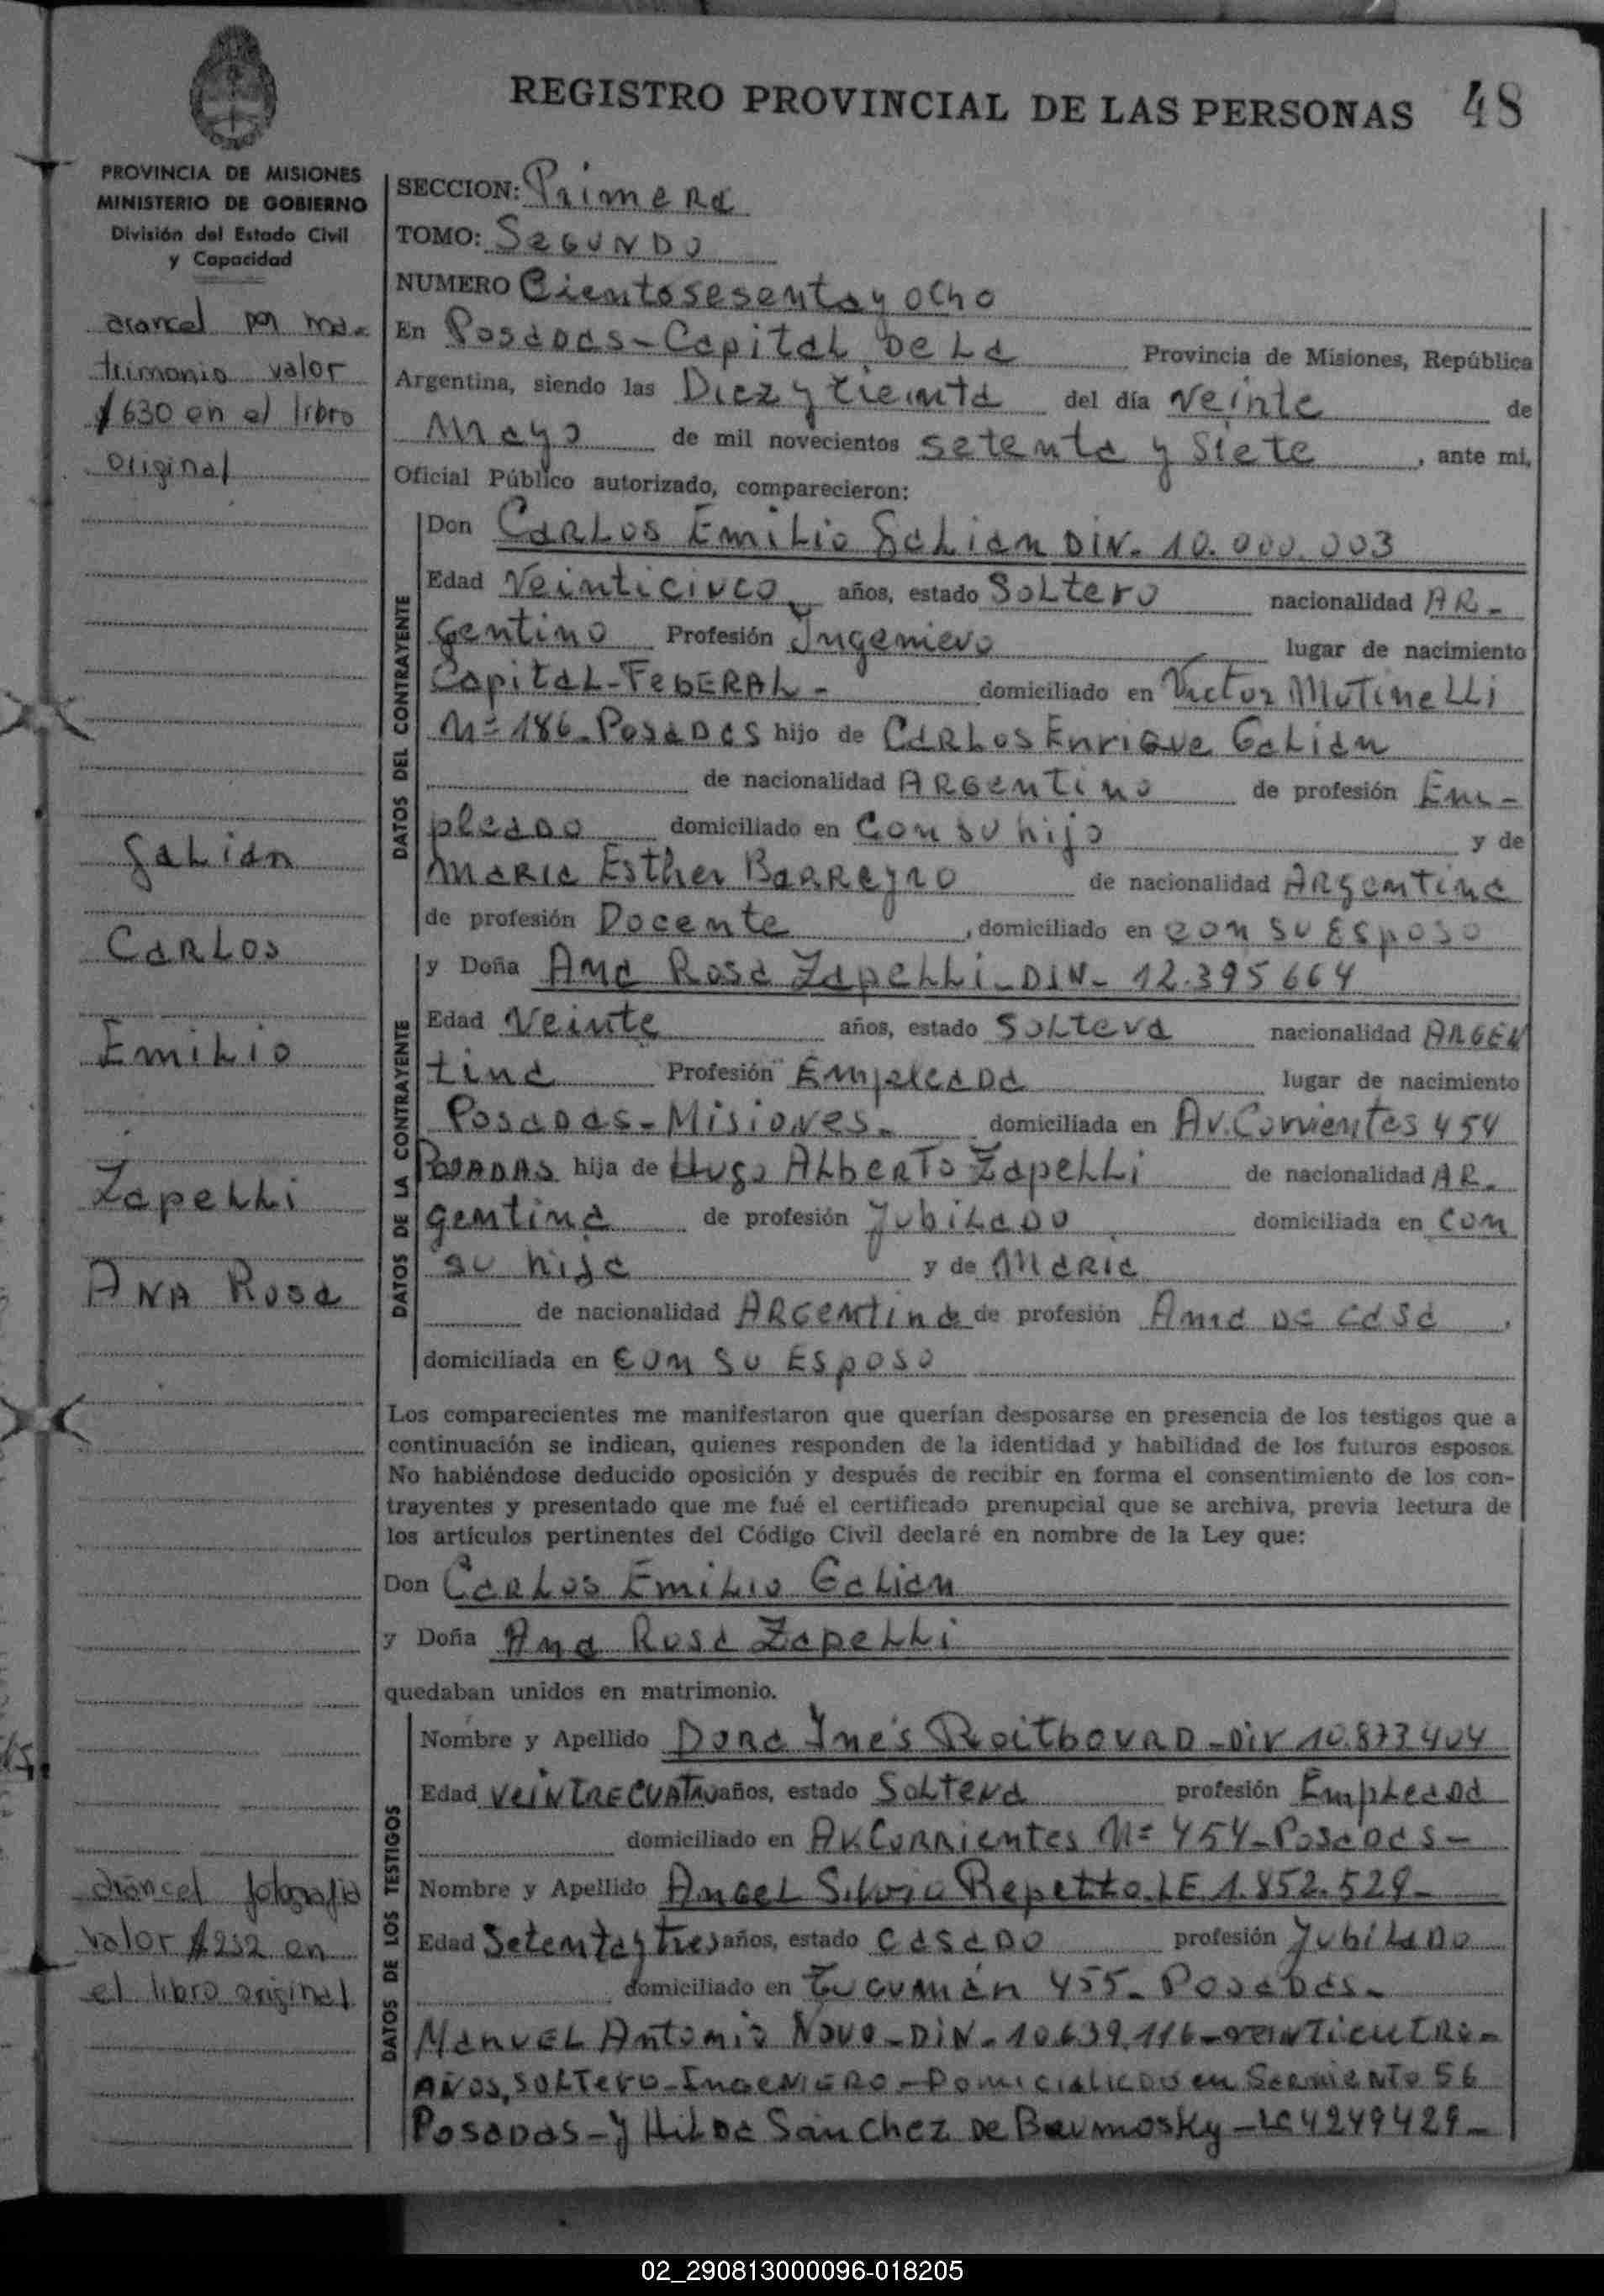 REGISTRO PROVINCIAL DE LAS PERSONAS 48
PROVINCIA DE MISIONES
MINISTERIO DE GOBIERNO
División del Estado Civil
y Capacidad
arancel por ma-
trimonio valor
$630 en el libro
original
Galian
Carlos
Emilio
Zapelli
Ana Rosa
arancel fotografia
valor $252 en
el libro original
SECCION: Primera
TOMO: Segundo
NUMERO Ciento sesenta y ocho
En Posadas - Capital De La Provincia de Misiones, República
Argentina, siendo las Diez y treinta del día veinte de
Mayo de mil novecientos setenta y siete, ante mi,
Oficial Público autorizado, comparecieron:
DATOS DEL CONTRAYENTE
Don Carlos Emilio Galian DIN. 10.000.003
Edad Veinticinco años, estado Soltero nacionalidad AR-
gentino Profesión Ingeniero lugar de nacimiento
Capital-Federal- domiciliado en Victor Mutinelli
Nº 186. Posadas hijo de Carlos Enrique Galian
de nacionalidad Argentino de profesión Em-
pleado domiciliado en Con su hijo y de
Maria Esther Barreyro de nacionalidad Argentina
de profesión Docente, domiciliado en con su Esposo
DATOS DE LA CONTRAYENTE
y Doña Ana Rosa Zapelli - DIN - 12.395 664
Edad Veinte años, estado Soltera nacionalidad ARGEN
tina Profesión Empleada lugar de nacimiento
Posadas - Misiones. domiciliada en Av. Corrientes 454
Posadas hija de Hugo Alberto Zapelli de nacionalidad AR.
gentina de profesión Jubilado domiciliada en con
su hija y de Maria
de nacionalidad Argentina de profesión Ama de casa,
domiciliada en con su Esposo
Los comparecientes me manifestaron que querían desposarse en presencia de los testigos que a
continuación se indican, quienes responden de la identidad y habilidad de los futuros esposos.
No habiéndose deducido oposición y después de recibir en forma el consentimiento de los con-
trayentes y presentado que me fué el certificado prenupcial que se archiva, previa lectura de
los artículos pertinentes del Código Civil declaré en nombre de la Ley que:
Don Carlos Emilio Galian
y Doña Ana Rosa Zapelli
quedaban unidos en matrimonio.
DATOS DE LOS TESTIGOS
Nombre y Apellido Dora Inés Roitbourd - DIN 10.873.404
Edad veintrecuatro años, estado Soltera profesión Empleada
domiciliado en Av. Corrientes Nº 454 - Posadas -
Nombre y Apellido Angel Silvio Repetto. LE 1.852.529-
Edad Setenta y tres años, estado casado profesión Jubilado
domiciliado en Tucumán 455 - Posadas.
Manuel Antonio Novo - DIN - 10.639.116 - veinticutro-
Años, Soltero - Ingeniero - en Sarmiento 56
Posadas - y Hilda Sanchez de Baumosky - LC 4249429-
02_290813000096-018205